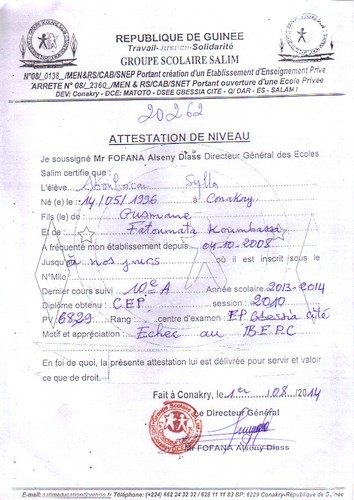 REPUBLIQUE DE GUINEE
Travail-Justice-Solidarité
GROUPE SCOLAIRE SALIM
N°08/_0138_/MEN&RS/CAB/SNEP Portant création d'un Etablissement d'Enseignement Privé
ARRETE N° 08/_2360_/MEN & RS/CAB/SNEP Portant ouverture d'une Ecole Privée
DEV: Conakry - DCE: MATOTO - DSEE GBESSIA CITE - Q/ DAR - ES - SALAM I
20262
ATTESTATION DE NIVEAU
Je soussigné Mr FOFANA Alseny Diass Directeur Général des Ecoles
Salim certifie que :
L'élève Aboubacar Sylla
Né (e) le : 14/05/1996 à Conakry
Fils (le) de : Ousmane
Et de : Fatoumata Koumbassa
A fréquenté mon établissement depuis 04-10-2008
Jusqu'à nos jours où il est inscrit sous le
N°Mle
Dernier cours suivi 10e A Année scolaire 2013-2014
Diplôme obtenu : CEP session : 2010
PV 6829 Rang centre d'examen : EP Gbessia cité
Motif et appréciation : Echec au B.E.P.C
En foi de quoi, la présente attestation lui est délivrée pour servir et valoir
ce que de droit.
Fait à Conakry, le 1er /08 /2014
Le Directeur Général
Mr FOFANA Alseny Diass
E-mail: salimeducation@yahoo.fr Téléphone: (+224) 662 24 32 32 / 628 11 11 83 BP: 6229 Conakry-République de Guinée